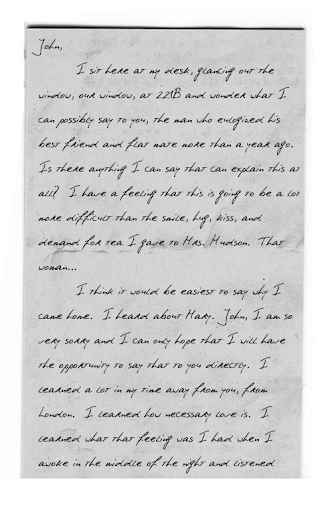 John,
I sit here at my desk, glancing out the
window, our window, at 221B and wonder what I
can possibly say to you, the man who eulogized his
best friend and flat mate more than a year ago.
Is there anything I can say that can explain this at
all? I have a feeling that this is going to be a lot
more difficult than the smile, hug, kiss, and
demand for tea I gave to Mrs. Hudson. That
woman...
I think it would be easiest to say why I
came home. I heard about Mary. John, I am so
very sorry and I can only hope that I will have
the opportunity to say that to you directly. I
learned a lot in my time away from you, from
London. I learned how necessary love is. I
learned what that feeling was I had when I
awoke in the middle of the night and listened